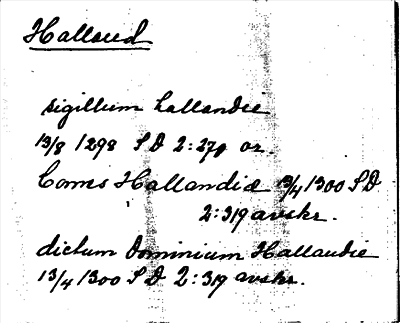 Halland
sigillum hallandie
13/8 1298 SD 2:270 or.
Comis Hallandiæ 13/4 1300 SD
2:319 avskr.
dictum dominium Hallandie
13/4 1300 SD 2:319 avskr.